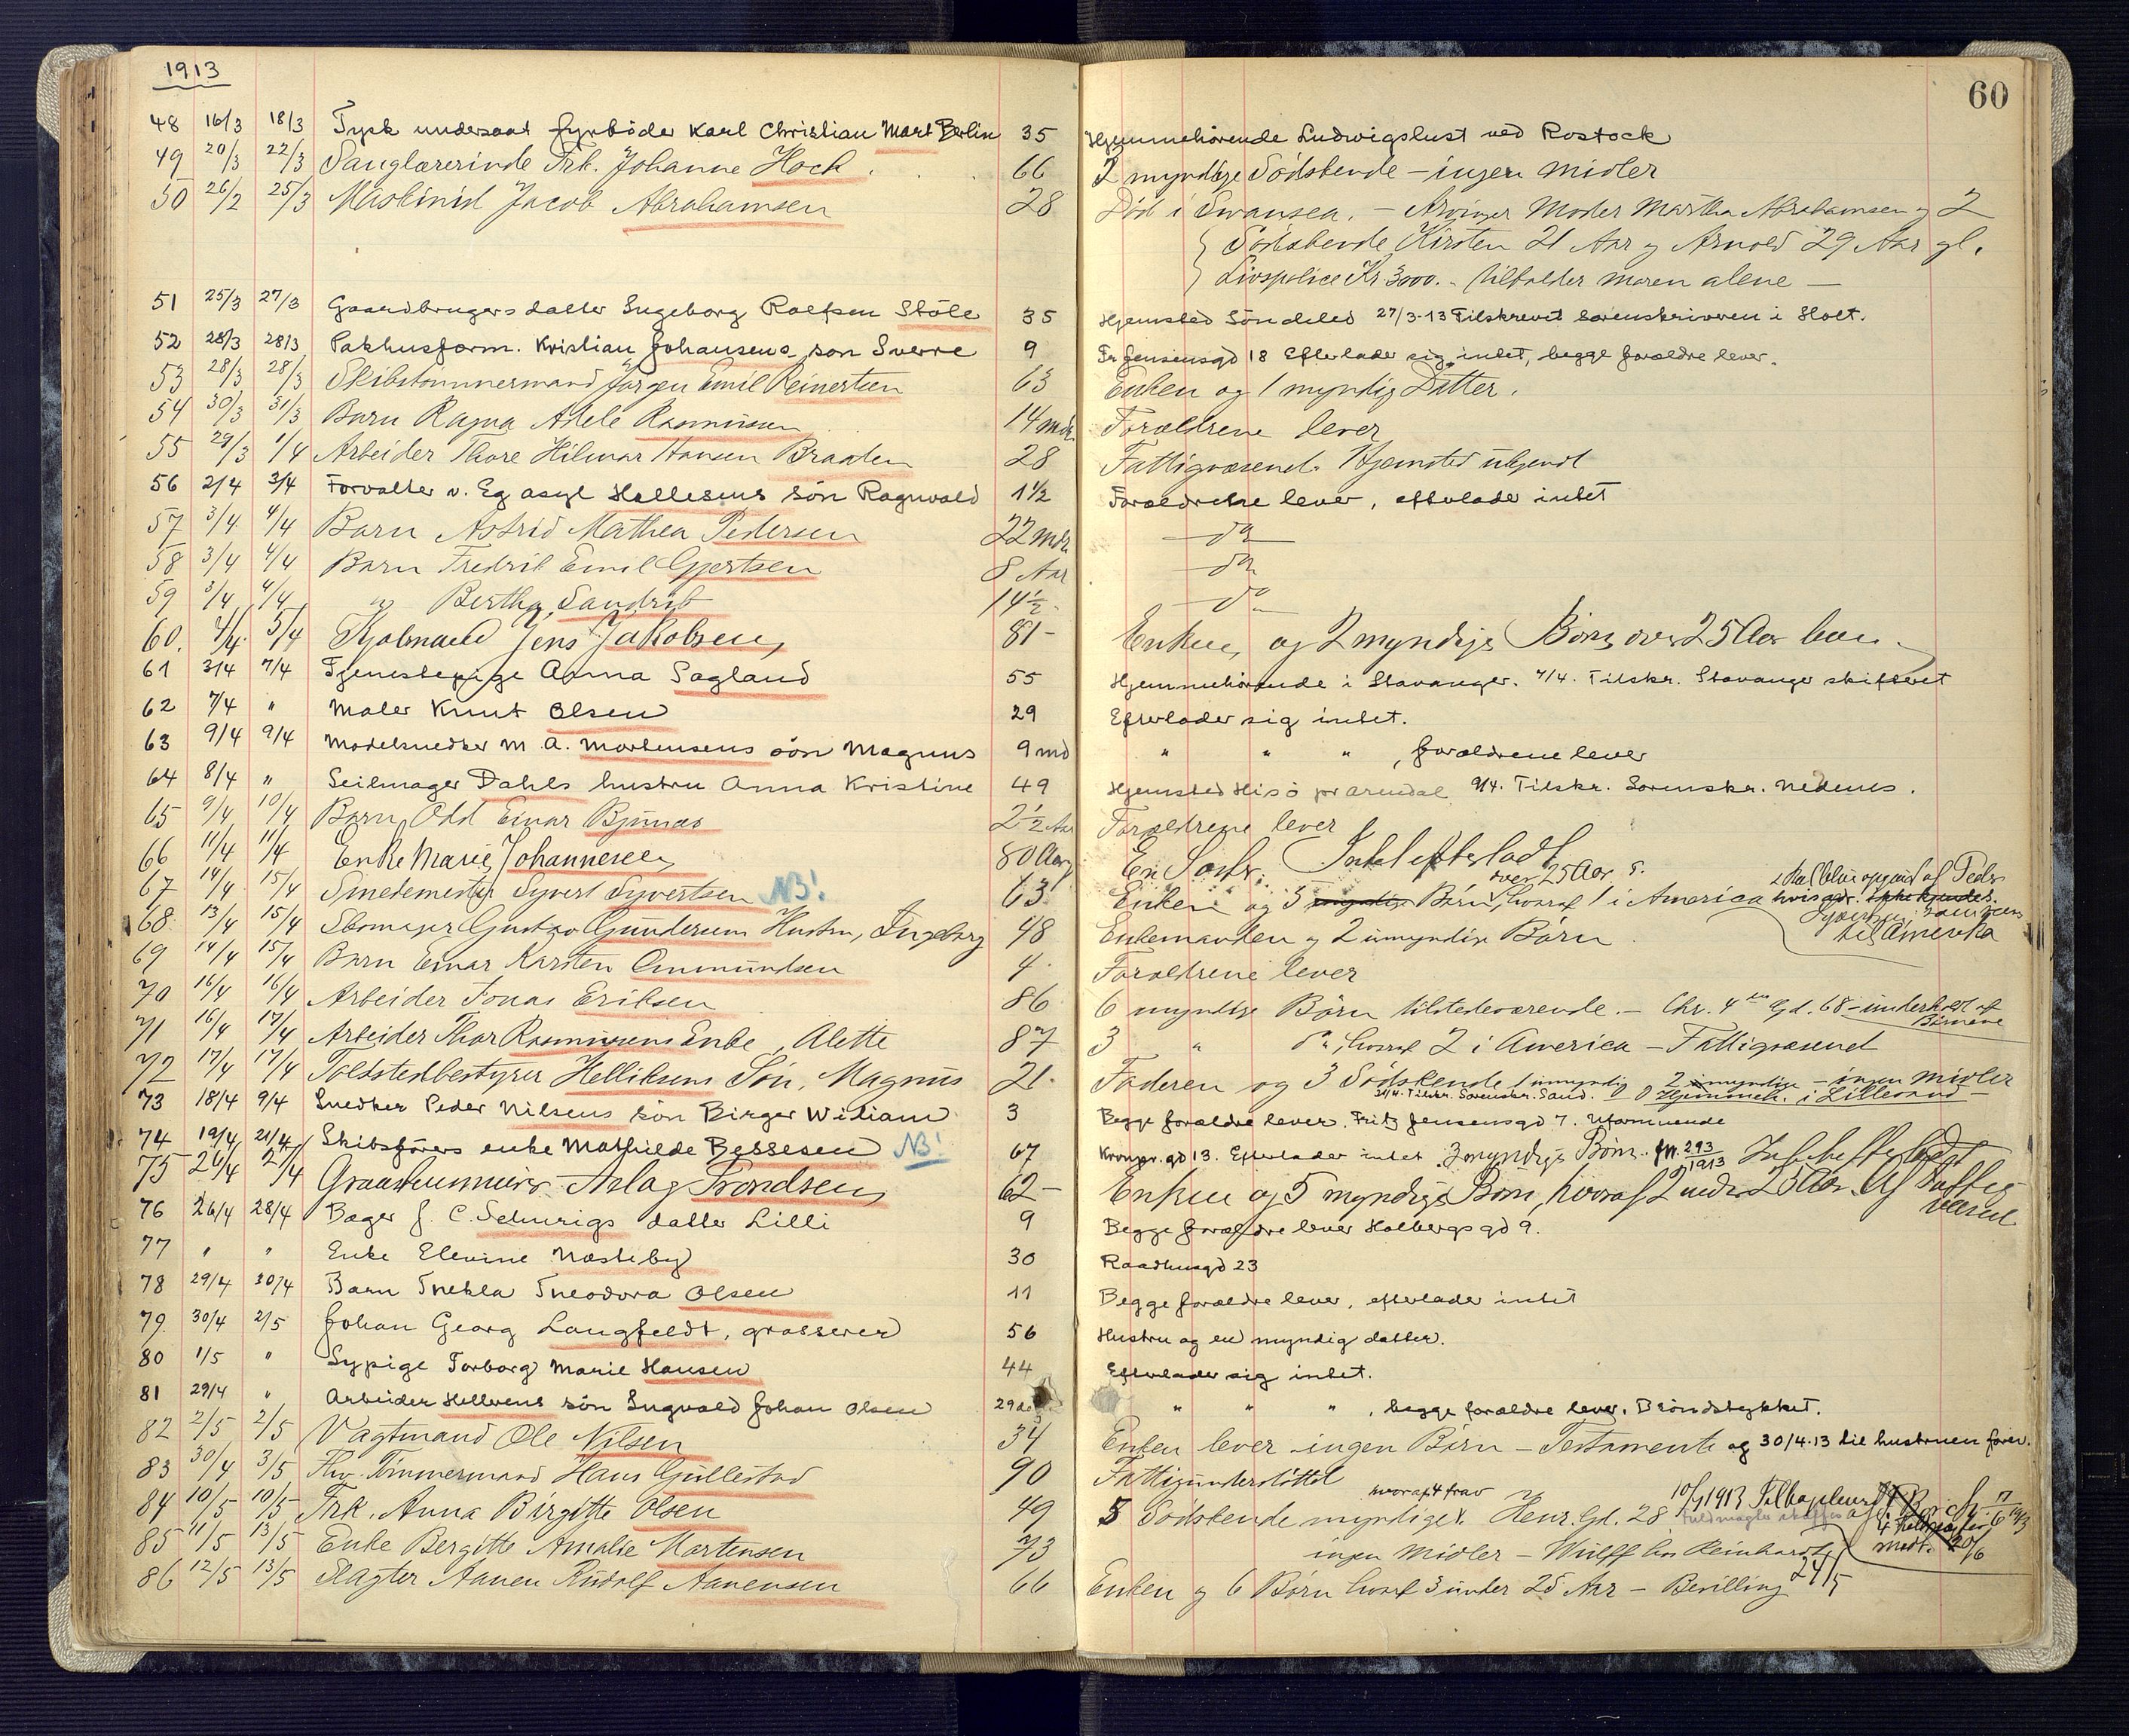 1913
60
48 16/3 18/3 Tysk undersaat fyrböder Karl Christian Mart Berlin 35 Hjemmehörende Ludwigslust ved Rostock
49 20/3 22/3 Sanglærerinde Frk. Johanne Hock 66 2 myndige Södskende – ingen midler
50 26/2 25/3 Maskinist Jacob Abrahamsen 28 Död i Swansea. – Arvinger Moder Martha Abrahamsen og 2
Södskende Kirsten 21 Aar og Arnold 29 Aar gl.
Livspolice Kr. 3000.- tilfalder moren alene –
51 25/3 27/3 Gaardbrugers datter Ingeborg Rolfsen Stöle 35 Hjemsted Söndeled 27/3-13 Tilskrevet Sorenskriveren i Holt.
52 28/3 28/3 Pakhusform. Kristian Johansens son Sverre 9 Fr Jensensgd 18 Efterlader sig intet, begge forældre lever.
53 28/3 28/3 Skibstømmermand Jörgen Emil Reinertsen 63 Enken og 1 myndig Datter.
54 30/3 31/3 Barn Ragna Adele Rasmussen 14 mdr Forældrene lever
55 29/3 1/4 Arbeider Thore Hilmar Hansen Braaten 28 Fattigvæsenet. Hjemsted ukjendt
56 2/4 3/4 Forvalter v. Eg asyl Hellesens sön Ragnvald 1 1/2 Forældrene lever, efterlader intet
57 3/4 4/4 Barn Astrid Mathea Pedersen 22 mdr – do –
58 3/4 4/4 Barn Fredrik Emil Gjertsen 8 Aar – do –
59 3/4 4/4 " Bertha Sandrib 14 1/2 – do –
60. 4/4 5/4 Jens Jakobsen 81 – Enken og 2 myndige Börn over 25 Aar
61 3/4 7/4 Tjenestepige Anna Sagland 55 Hjemmehörende i Stavanger. 7/4. Tilskr. Stavanger skifteret
62 7/4 " Maler Knut Olsen 29 Efterlader sig intet.
63 9/4 9/4 Modelsnedker M. A. Mortensens sön Magnus 9 md " " " , forældrene lever
64 8/4 " Seilmager Dahls hustru Anna Kristine 49 Hjemsted Hisö pr Arendal 9/4. Tilskr. Sorenskr. Nedenes.
65 9/4 10/4 Barn Odd Einar Bjunæs 2 1/2 Aar Forældrene lever
66 11/4 11/4 Enke Marie Johannesen 80 Aar En Søster. Intet efterladt
over 25 Aar
67 14/4 15/4 Smedemester Syvert Syvertsen NB! 63 Enken og 3 myndige Börn, hvoraf 1 i America hvis adr. ikke kjendes.
til Amerika
68 13/4 15/4 Skomager Gustav Gundersens Hustru, Ingeborg 48 Enkemanden og 2 umyndige Börn
69 14/4 15/4 Barn Einar Karsten Ommundsen 4 Forældrene lever
70 16/4 16/4 Arbeider Jonas Eriksen 86 6 myndige Börn tilstedeværende. – Chr. 4des Gd. 68 – underholdt af
Börnene
71 16/4 17/4 Arbeider Thor Rasmussens Enke, Alette 87 3 " do, hvoraf 2 i America – Fattigvæsenet
72 17/4 17/4 Toldstedbestyrer Helliksens Sön, Magnus 21 Faderen og 3 Södskende 1 umyndig 2 myndige – ingen midler
Tilskr. Sorenskr. Sand. Hjemmeh. i Lillesand –
73 18/4 9/4 Snedker Peder Nilsens sön Birger Wiliam 3 Begge forældre lever. Fritz Jensensgd 7. Uformuende
74 19/4 21/4 Skibsförers enke Mathilde Bessesen NB! 67 Kronpr. gd 13. Efterlader intet 3 myndige Börn. fm. 293/1913
75 26/4 2/4 Aslag Trondsen 62 – Enken og 5 myndige Börn, hvoraf 2 under 25 Aar. Af Fattig
væsenet
76 26/4 28/4 Bager J. C. Schurigs datter Lilli 9 Begge forældre lever Holbergs gd 9.
77 " " Enke Elevine Næsteby 30 Raadhusgd 23
78 29/4 30/4 Barn Thekla Theodora Olsen 11 Begge forældre lever, efterlader intet
79 30/4 2/5 Johan Georg Langfeldt, grosserer 56 Hustru og en myndig datter.
80 1/5 " Sypige Torborg Marie Hansen 44 Efterlader sig intet.
81 29/4 " Arbeider Hellvens sön Ingvald Johan Olsen 29 " " " , begge forældre lever. Bröndstykket.
82 2/5 2/5 Vagtmand Ole Nilsen 34 Enken lever – ingen Börn – Testamente af 30/4.13 til hustruen forev.
83 30/4 3/5 Fhv. Tömmermand Hans Gullestad 90 Fattigunderstöttet
hvoraf 4 frav
84 10/5 10/5 Frk. Anna Birgitte Olsen 49 5 Södskende myndige. Henr. Gd. 28
85 11/5 13/5 Enke Bergitte Amalie Mortensen 73 ingen midler – Wulff hos Reinhardt
86 12/5 13/5 Slagter Aanen Rudolf Aanensen 66 Enken og 6 Börn hvoraf 3 under 25 Aar – Bevilling 24/5